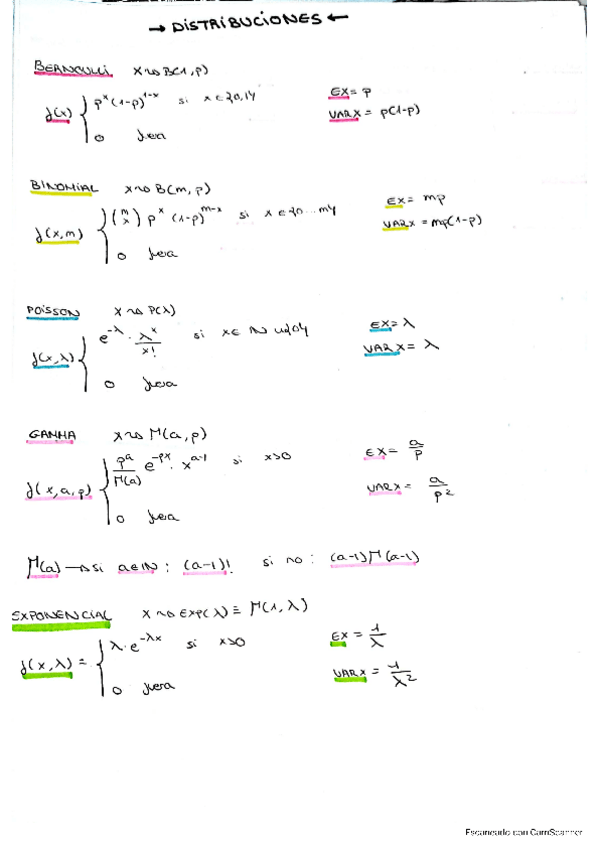 → DISTRIBUCIONES ←
BERNOULLI X ~> B(1,p)
f(x) { p^x (1-p)^{1-x} si x ∈ {0,1}
0 fuera
EX = p
VARX = p(1-p)
BINOMIAL X ~> B(m,p)
f(x,m) { (m x) p^x (1-p)^{m-x} si x ∈ {0...m}
0 fuera
EX = mp
VARX = mp(1-p)
POISSON X ~> P(λ)
f(x,λ) { e^{-λ} · λ^x/x! si x ∈ ℕ ∪ {0}
0 fuera
EX = λ
VARX = λ
GAMMA X ~> Γ(a,p)
f(x,a,p) { p^a/Γ(a) e^{-px} · x^{a-1} si x>0
0 fuera
EX = a/p
VARX = a/p²
Γ(a) → si a∈ℕ : (a-1)! si no : (a-1)Γ(a-1)
EXPONENCIAL X ~> EXP(λ) ≡ Γ(1,λ)
f(x,λ) = { λ·e^{-λx} si x>0
0 fuera
EX = 1/λ
VARX = 1/λ²
Escaneado con CamScanner